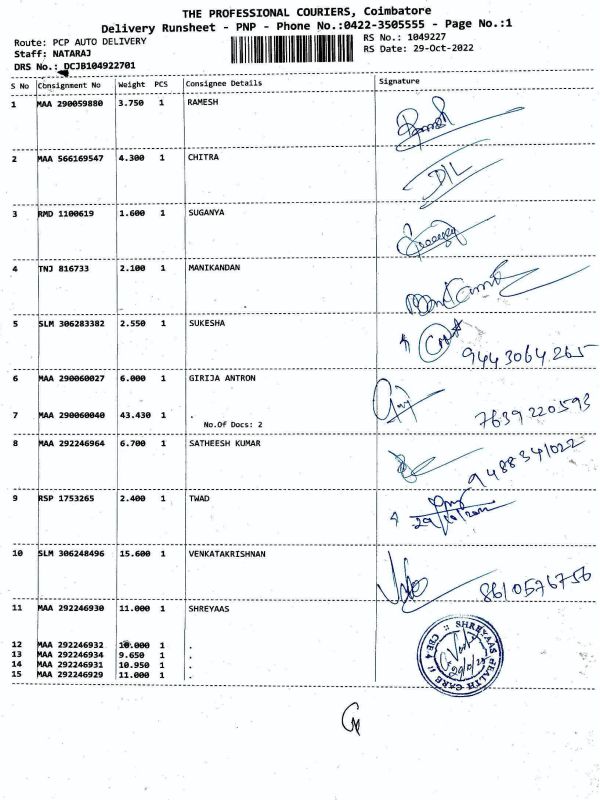 THE PROFESSIONAL COURIERS, Coimbatore
Delivery Runsheet - PNP - Phone No.:0422-3505555 - Page No.:1
Route: PCP AUTO DELIVERY
Staff: NATARAJ
DRS No.: DCJB104922701
RS No.: 1049227
RS Date: 29-Oct-2022
S No Consignment No Weight PCS Consignee Details Signature
1 MAA 290059880 3.750 1 RAMESH Ramesh
2 MAA 566169547 4.300 1 CHITRA
3 RMD 1100619 1.600 1 SUGANYA
4 TNJ 816733 2.100 1 MANIKANDAN
5 SLM 306283382 2.550 1 SUKESHA 9443064265
6 MAA 290060027 6.000 1 GIRIJA ANTRON
7 MAA 290060040 43.430 1 . 7639220593
No.Of Docs: 2
8 MAA 292246964 6.700 1 SATHEESH KUMAR 9488341022
9 RSP 1753265 2.400 1 TWAD
10 SLM 306248496 15.600 1 VENKATAKRISHNAN 8610576756
11 MAA 292246930 11.000 1 SHREYAAS
12 MAA 292246932 10.000 1 .
13 MAA 292246934 9.650 1 .
14 MAA 292246931 10.950 1 .
15 MAA 292246929 11.000 1 .
SHREYAAS HEALTH CARE